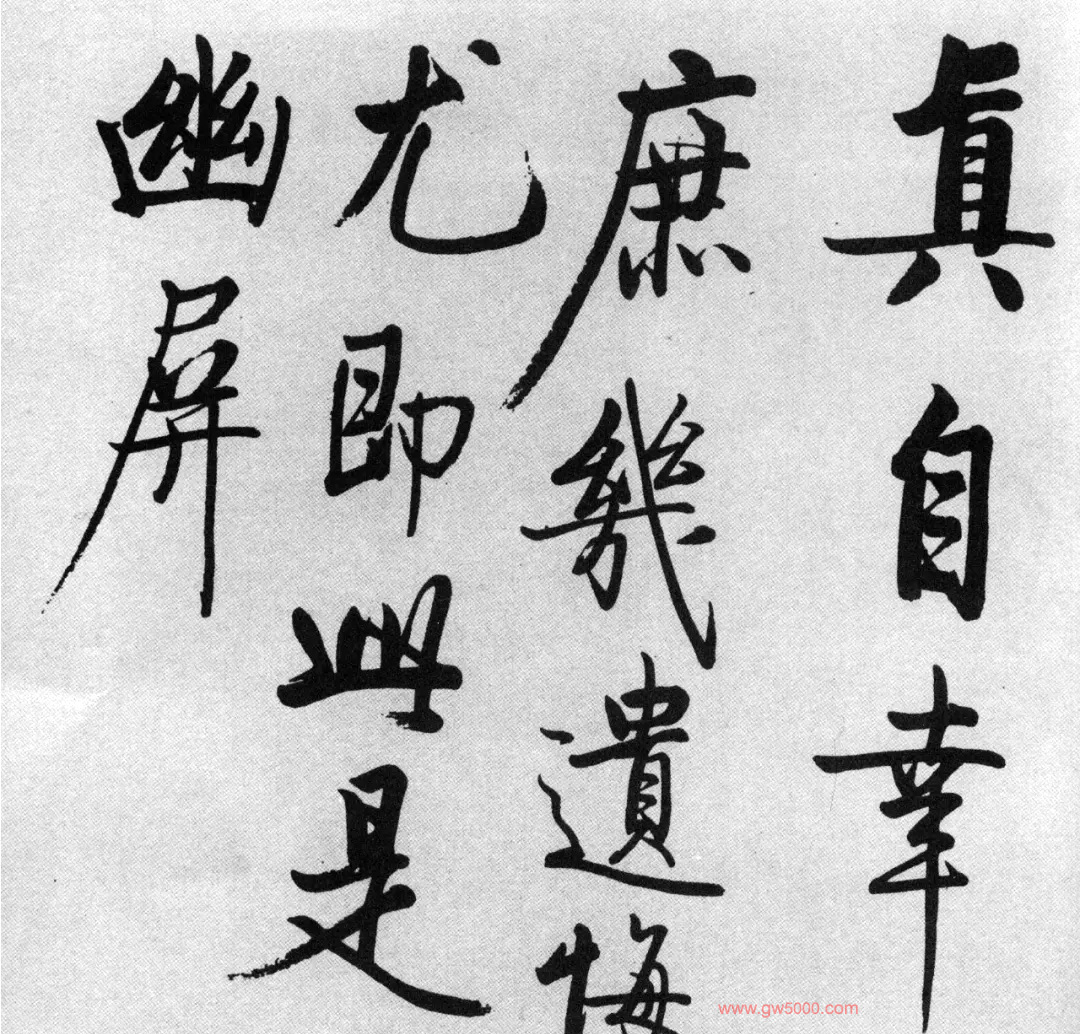 真自幸
庶幾遺悔
尤即此是
幽屏
www.gw5000.com